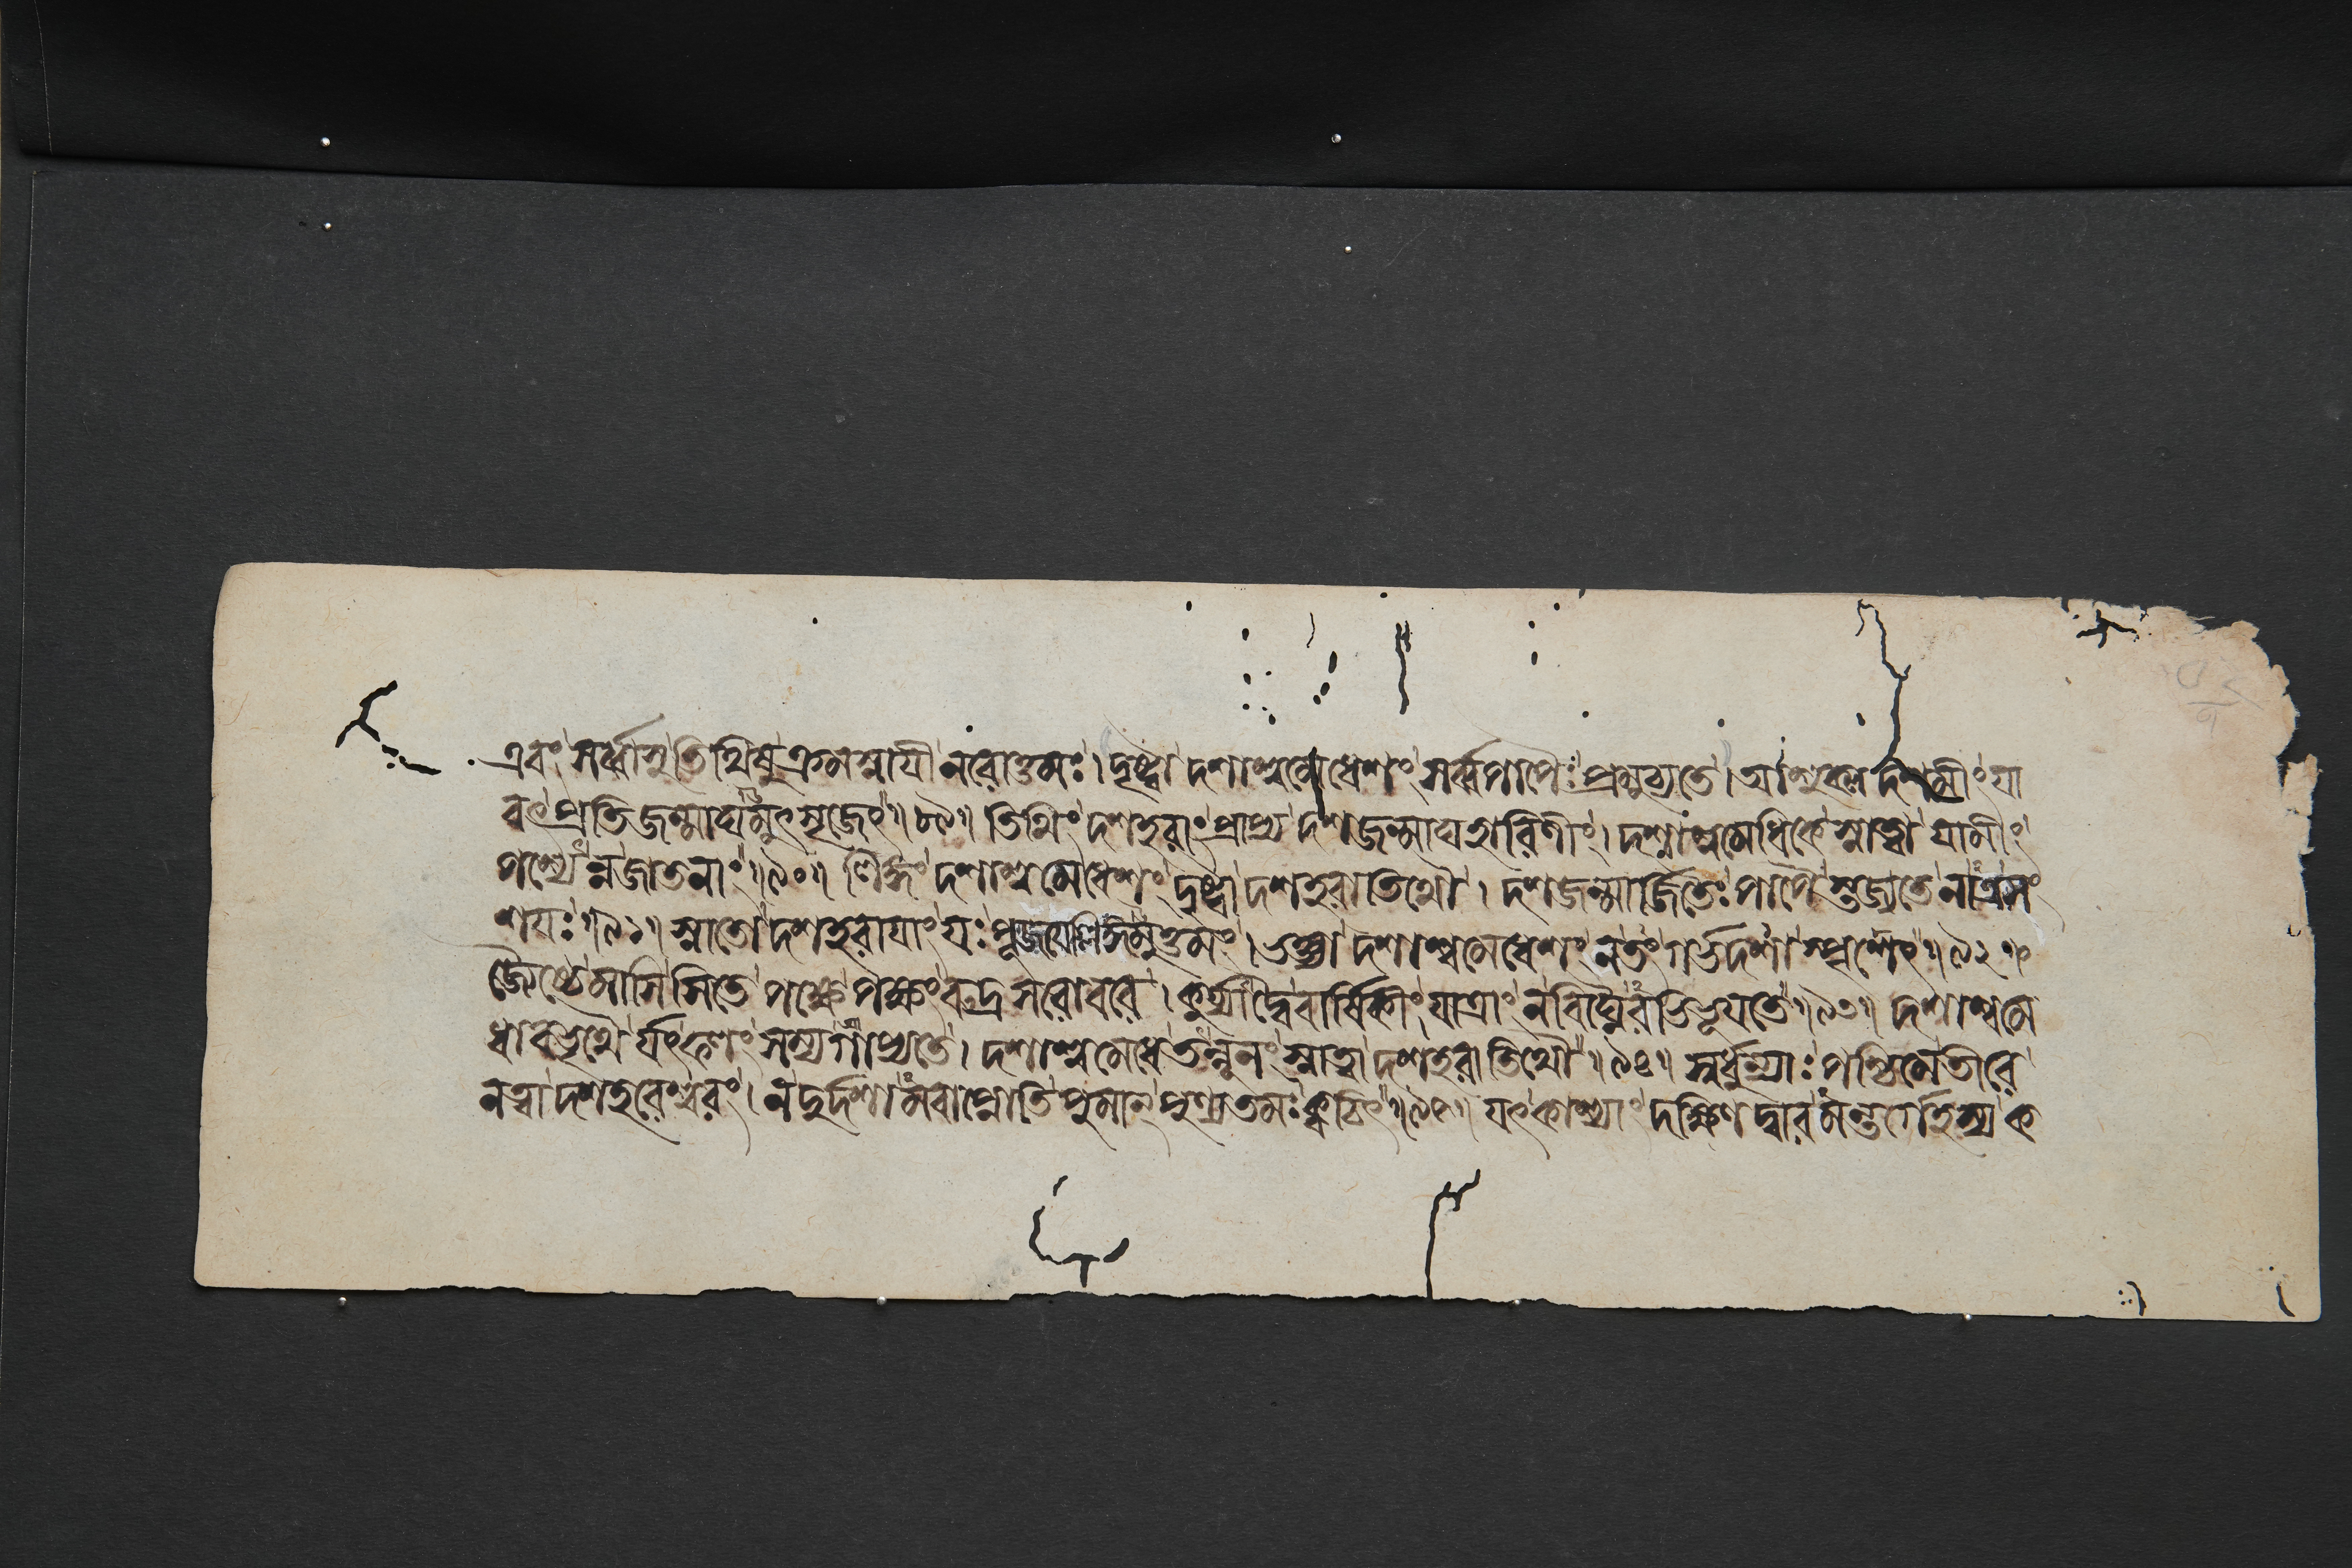 এবং সর্ব্বাসু তিথিষু ক্রমস্নায়ী নরোত্তমঃ। দৃষ্ট্বা দশাশ্বমেধেশং সর্ব্বপাপৈঃ প্রমুচ্যতে। আশুক্লদশমীং যা
বৎ প্রতিজন্মাঘমুৎসৃজেৎ॥৮৯॥ তিথিং দশহরাং প্রাপ্য দশজন্মাঘহারিণীং। দশাশ্বমেধিকে স্নাত্বা যামীং
পশ্যেন্নজাতনাং॥৯০॥ লিঙ্গং দশাশ্বমেধেশং দৃষ্ট্বা দশহরাতিথৌ। দশজন্মার্জিতৈঃ পাপৈস্ত্যজ্যতে নাত্রসং
শয়ঃ॥৯১॥ স্নাতো দশহরায়াং যঃ পূজয়েল্লিঙ্গমুত্তমং। ভক্ত্যা দশাশ্বমেধেশং নতং গর্ভদশা স্পৃশেৎ॥৯২॥
জ্যৈষ্ঠে মাসি সিতে পক্ষে পক্ষং রুদ্রসরোবরে। কুর্য্যাদ্বৈ বার্ষিকীং যাত্রাং ন বিঘ্নৈরভিভূয়তে॥৯৩॥ দশাশ্বমে
ধাবভৃথৈ র্যৎফলং সম্যগাপ্যতে। দশাশ্বমেধে তন্নূনং স্নাত্বা দশহরাতিথৌ॥৯৪॥ স্বর্ধুন্যাঃ পশ্চিমে তীরে
নত্বা দশহরেশ্বরং। ন দুর্দশামবাপ্নোতি পুমান্ পুণ্যতমঃ ক্বচিৎ॥৯৫॥ যৎকাশ্যাং দক্ষিণ দ্বারমন্তর্গেহস্য ক